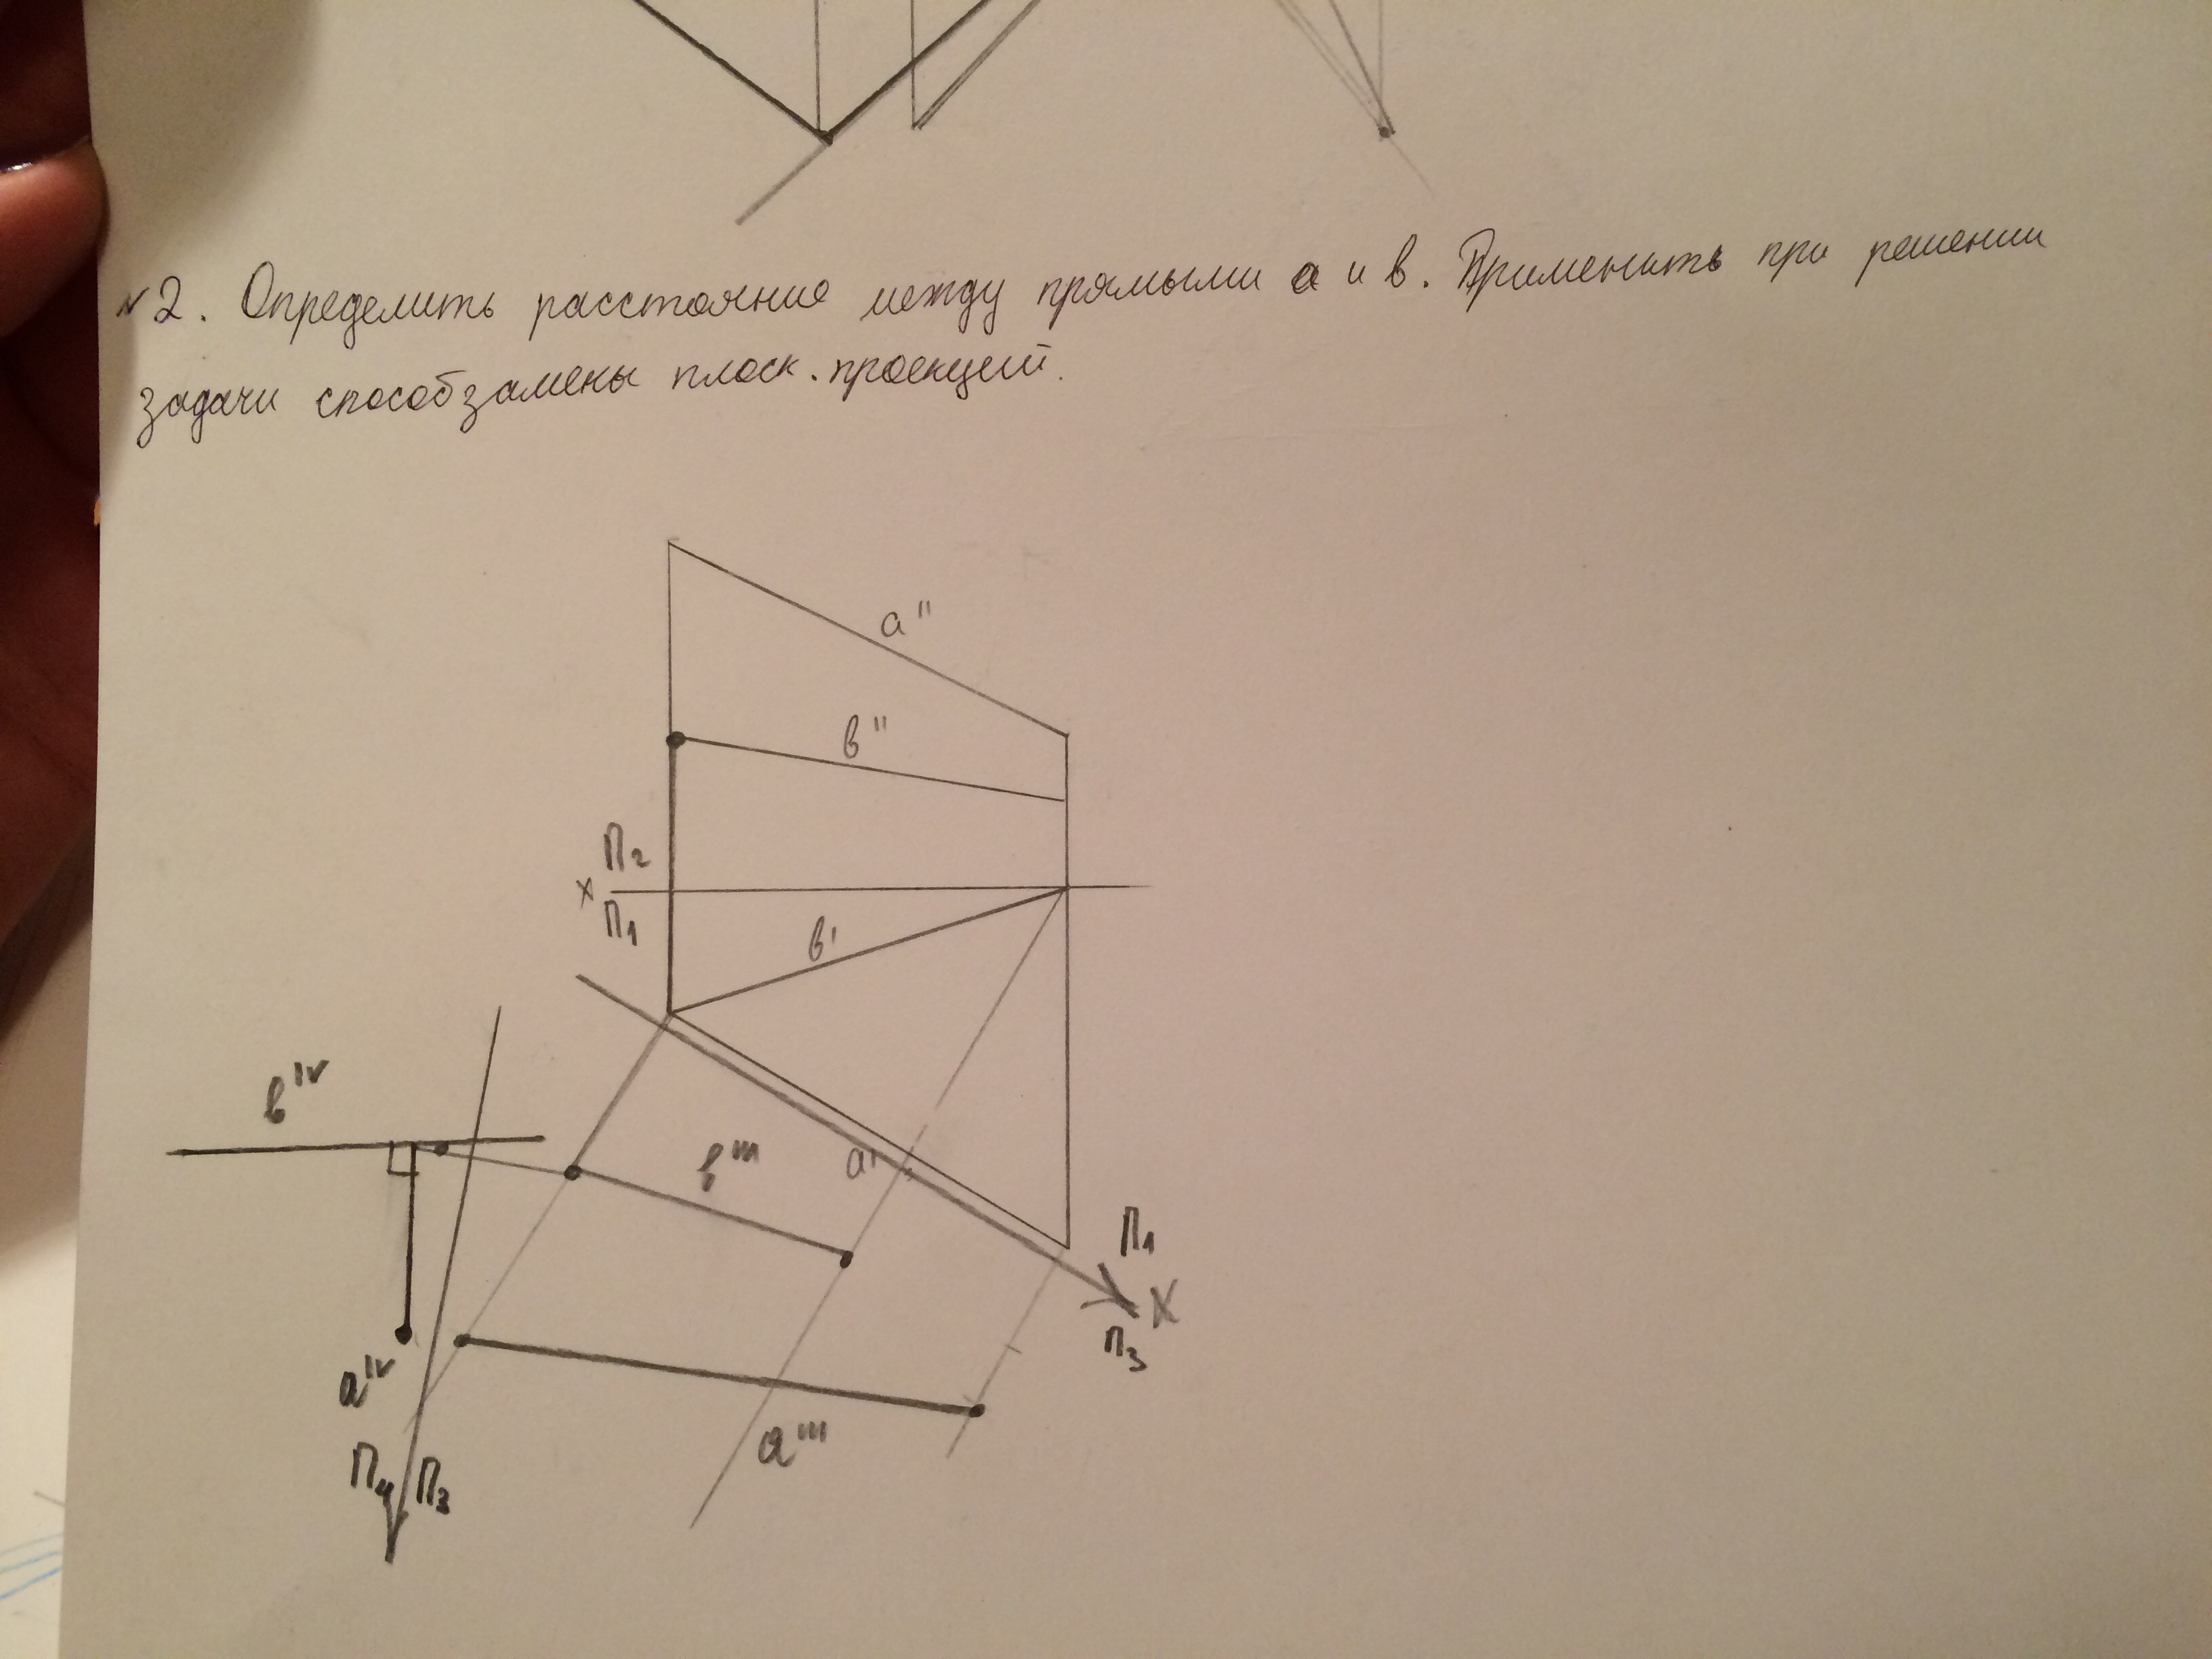 №2. Определить расстояние между прямыми а и в. Применить при решении
задачи способ замены плоск. проекций.
а"
в"
П2
х
П1
в'
вIV
в'''
а'
П1
х
П3
аIV
а'''
П4 П3